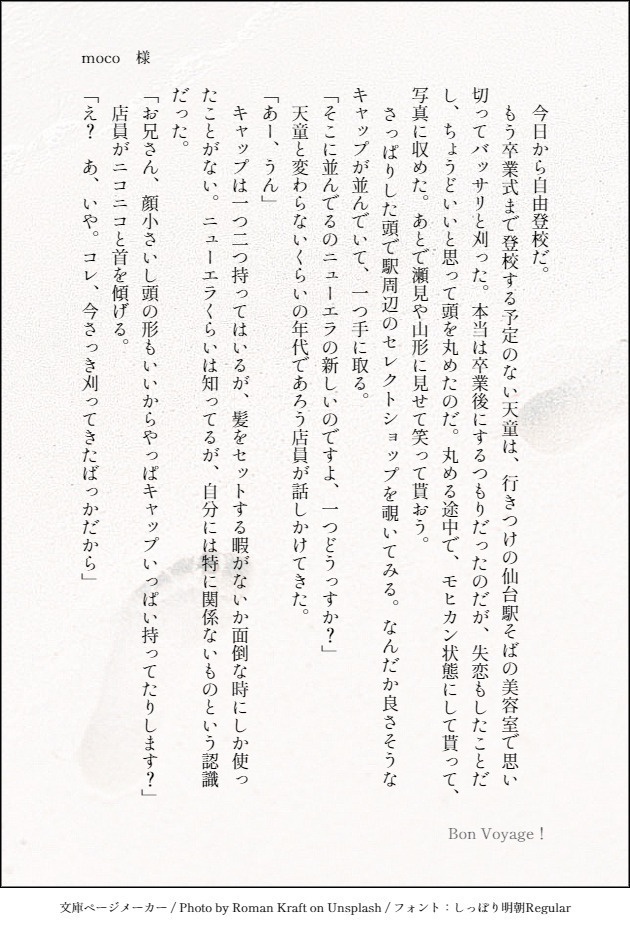 moco　様
　今日から自由登校だ。
　もう卒業式まで登校する予定のない天童は、行きつけの仙台駅そばの美容室で思い
切ってバッサリと刈った。本当は卒業後にするつもりだったのだが、失恋もしたことだ
し、ちょうどいいと思って頭を丸めたのだ。丸める途中で、モヒカン状態にして貰って、
写真に収めた。あとで瀬見や山形に見せて笑って貰おう。
　さっぱりした頭で駅周辺のセレクトショップを覗いてみる。なんだか良さそうな
キャップが並んでいて、一つ手に取る。
「そこに並んでるのニューエラの新しいのですよ、一つどうっすか？」
　天童と変わらないくらいの年代であろう店員が話しかけてきた。
「あー、うん」
　キャップは一つ二つ持ってはいるが、髪をセットする暇がないか面倒な時にしか使っ
たことがない。ニューエラくらいは知ってるが、自分には特に関係ないものという認識
だった。
「お兄さん、顔小さいし頭の形もいいからやっぱキャップいっぱい持ってたりします？」
　店員がニコニコと首を傾げる。
「え？　あ、いや。コレ、今さっき刈ってきたばっかだから」
Bon Voyage！
文庫ページメーカー / Photo by Roman Kraft on Unsplash / フォント：しっぽり明朝Regular